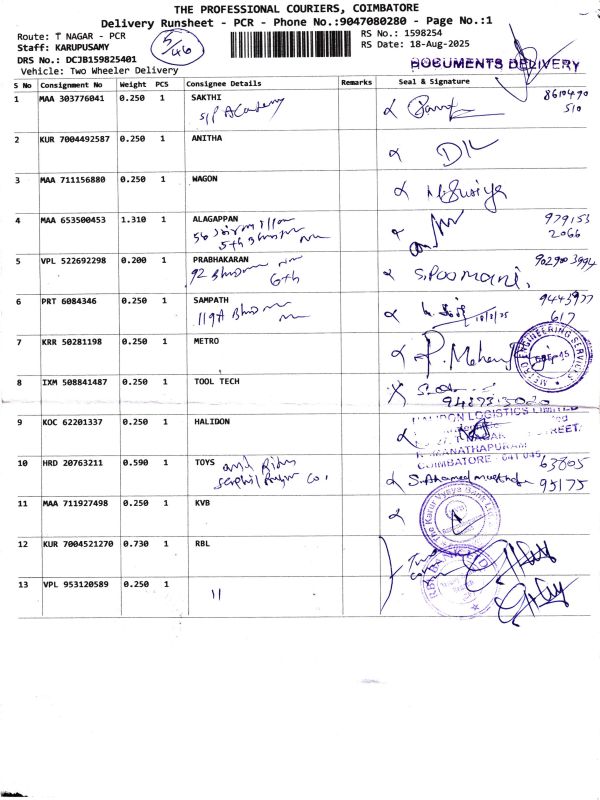 THE PROFESSIONAL COURIERS, COIMBATORE
Delivery Runsheet - PCR - Phone No.:9047080280 - Page No.:1
Route: T NAGAR - PCR
Staff: KARUPUSAMY
DRS No.: DCJB159825401
Vehicle: Two Wheeler Delivery
5/46
RS No.: 1598254
RS Date: 18-Aug-2025
DOCUMENTS DELIVERY
S No Consignment No Weight PCS Consignee Details Remarks Seal & Signature
1 MAA 303776041 0.250 1 SAKTHI
S/P Academy
8610490
510
2 KUR 7004492587 0.250 1 ANITHA
3 MAA 711156880 0.250 1 WAGON
4 MAA 653500453 1.310 1 ALAGAPPAN
56
5th
979153
2066
5 VPL 522692298 0.200 1 PRABHAKARAN
92
6th
S.Poomani.
9029003994
6 PRT 6084346 0.250 1 SAMPATH
119A
18/8/25
9445977
617
7 KRR 50281198 0.250 1 METRO
P. Mohan
METRO ENGINEERING SERVICES
8 IXM 508841487 0.250 1 TOOL TECH
9487313020
9 KOC 62201337 0.250 1 HALIDON
HALIDON LOGISTICS LIMITED
NAGAR STREET,
RAMANATHAPURAM
COIMBATORE - 641 045
10 HRD 20763211 0.590 1 TOYS
Co,
S. Ahamed
63805
95175
11 MAA 711927498 0.250 1 KVB
The Karur Vysya Bank Ltd
12 KUR 7004521270 0.730 1 RBL
RBL BANK LTD
13 VPL 953120589 0.250 1 "